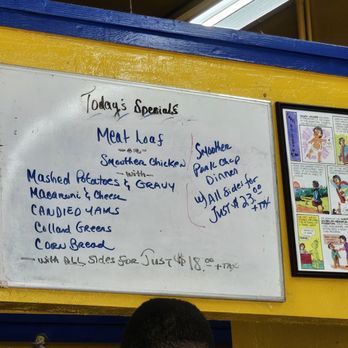 Today's Specials
Meat Loaf
-or-
Smoothen Chicken
-with-
Mashed Potatoes & Gravy
Macaroni & Cheese
Candied Yams
Collard Greens
Corn Bread
-with all sides for Just $18.00 +tax
Smoothen
Pork Chop
Dinner
w/All Sides for
Just $23.00
+tax